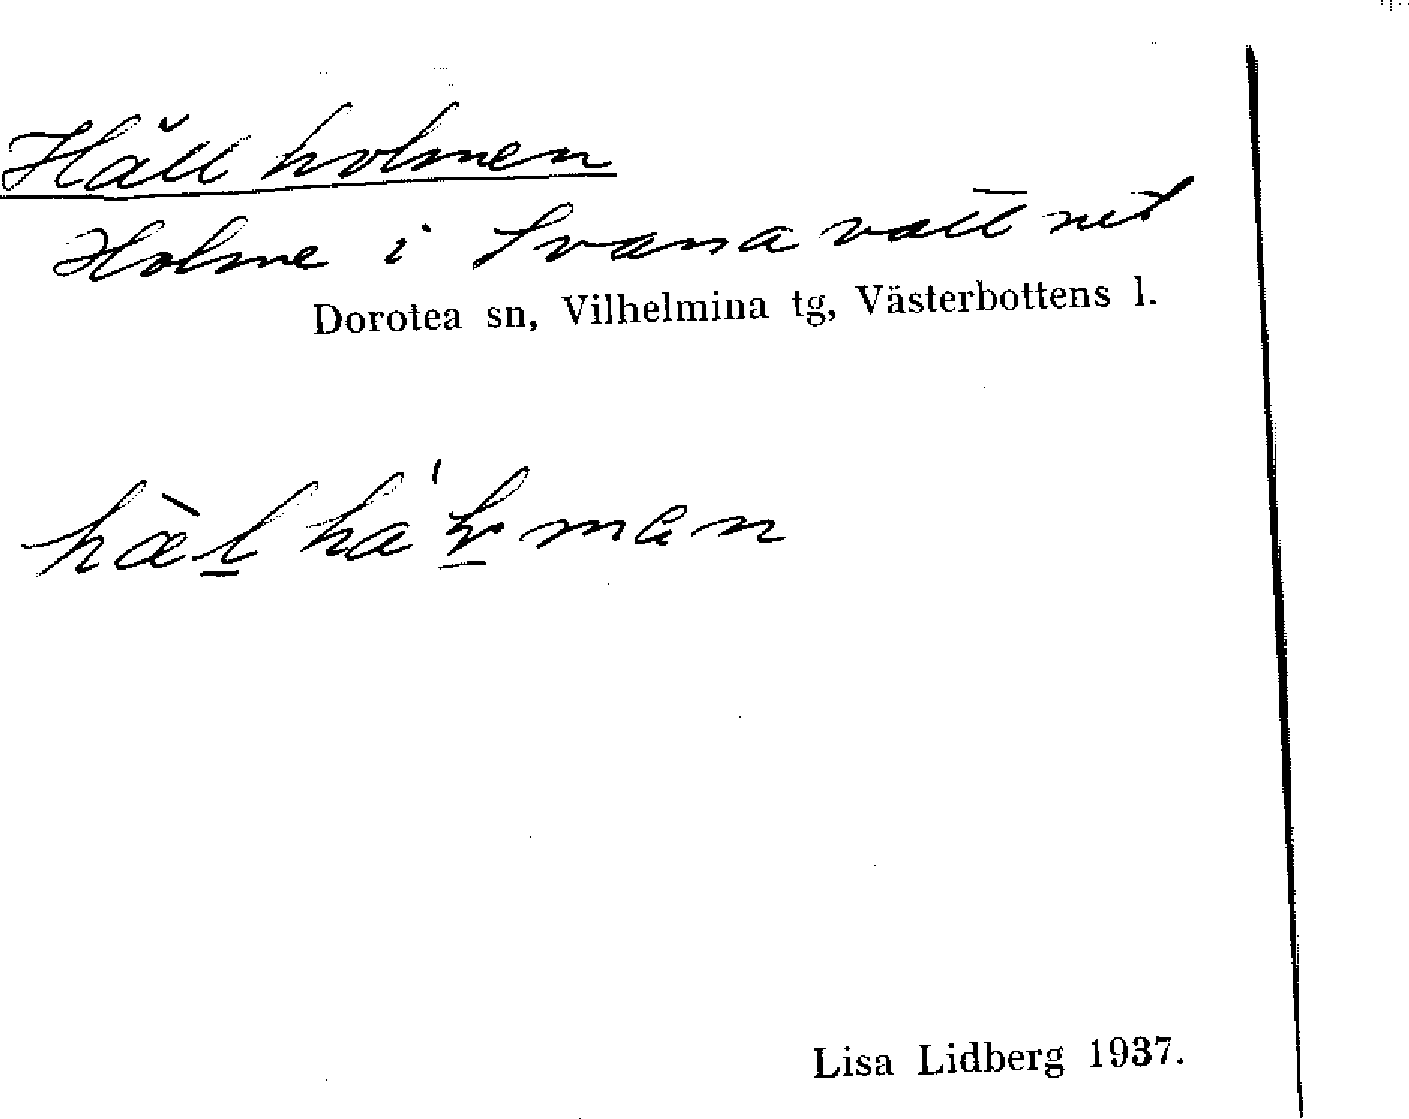 Hällholmen
Holme i Svanavattnet
Dorotea sn, Vilhelmina tg, Västerbottens l.
Lisa Lidberg 1937.